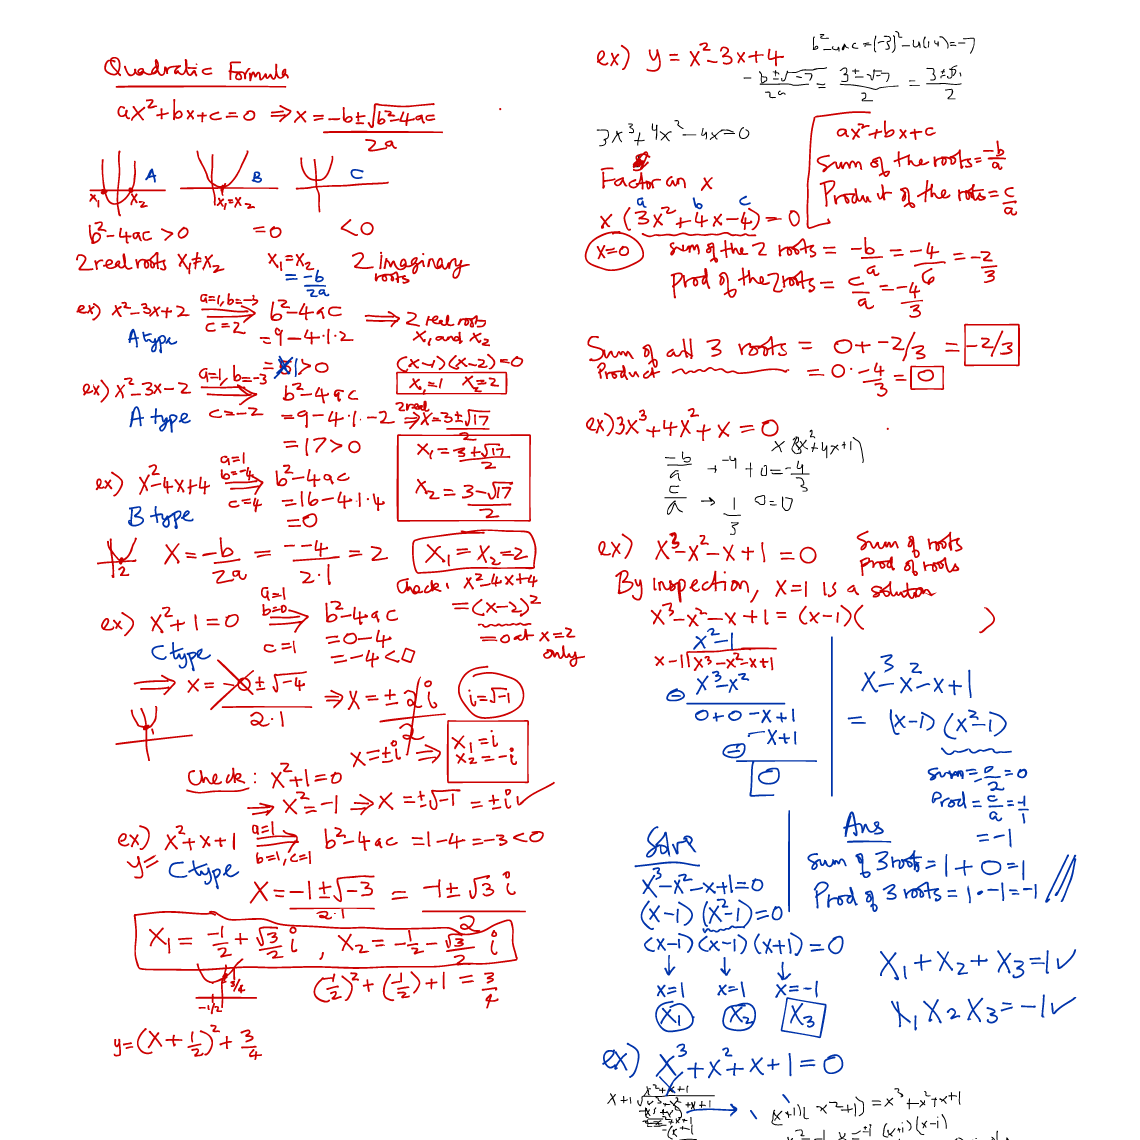 Quadratic Formula
ax²+bx+c=0 ⇒ x = -b±√b²-4ac / 2a
A B C
x₁ x₂ x₁=x₂
b²-4ac >0 =0 <0
2 real roots x₁≠x₂ x₁=x₂ = -b/2a 2 imaginary roots
ex) x²-3x+2 a=1, b=-3 c=2 ⇒ b²-4ac ⇒ 2 real roots x₁ and x₂
A type = 9-4·1·2
= 1>0 (x-1)(x-2)=0
x₁=1 x₂=2
ex) x²-3x-2 a=1, b=-3 c=-2 ⇒ b²-4ac
A type = 9-4·1·-2 2 real ⇒ x = 3±√17 / 2
= 17>0
x₁ = 3+√17 / 2
x₂ = 3-√17 / 2
ex) x²-4x+4 a=1 b=-4 c=4 ⇒ b²-4ac
B type = 16-4·1·4
=0
2 x = -b/2a = --4/2·1 = 2 x₁=x₂=2
Check: x²-4x+4
= (x-2)²
= 0 at x=2 only
ex) x²+1=0 a=1 b=0 c=1 ⇒ b²-4ac
C type = 0-4
= -4<0
⇒ x = -0±√-4 / 2·1 ⇒ x = ± 2i/2 i=√-1
x=±i ⇒ x₁=i x₂=-i
Check: x²+1=0
⇒ x²=-1 ⇒ x=±√-1 = ±i ✓
ex) x²+x+1 a=1 b=1, c=1 ⇒ b²-4ac = 1-4 = -3<0
y= C type
x = -1±√-3 / 2·1 = -1±√3 i / 2
x₁ = -1/2 + √3/2 i , x₂ = -1/2 - √3/2 i
3/4 -1/2 (-1/2)²+(-1/2)+1 = 3/4
y=(x+1/2)²+3/4
ex) y = x²-3x+4 b²-4ac=(-3)²-4(1·4)=-7
-b±√-7 / 2a = 3±√-7 / 2
3x³+4x²-4x=0
Factor an x
a b c
x(3x²+4x-4)=0
ax²+bx+c
Sum of the roots = -b/a
Product of the roots = c/a
x=0 sum of the 2 roots = -b/a = -4/6 = -2/3
Prod of the 2 roots = c/a = -4/3
Sum of all 3 roots = 0+-2/3 = -2/3
Product = 0·-4/3 = 0
ex) 3x³+4x²+x=0
x(3x²+4x+1)
-b/a → -4 + 0 = -4/3
c/a → 1/3 0=0
ex) x³-x²-x+1=0 Sum of roots
Prod of roots
By inspection, x=1 is a solution
x³-x²-x+1 = (x-1)( )
x²-1
x-1 x³-x²-x+1
x³-x²
0+0-x+1
-x+1
0
x³-x²-x+1
= (x-1)(x²-1)
Sum=0/2=0
Prod=c/a=-1/1
=-1
Solve
x³-x²-x+1=0
(x-1)(x²-1)=0
(x-1)(x-1)(x+1)=0
↓ ↓ ↓
x=1 x=1 x=-1
x₁ x₂ x₃
Ans
Sum of 3 roots = 1+0=1
Prod of 3 roots = 1·-1=-1
x₁+x₂+x₃=1✓
x₁x₂x₃=-1✓
ex) x³+x²+x+1=0
x+1
(x+1)(x²+1) = x³+x²+x+1
(x+i)(x-i)